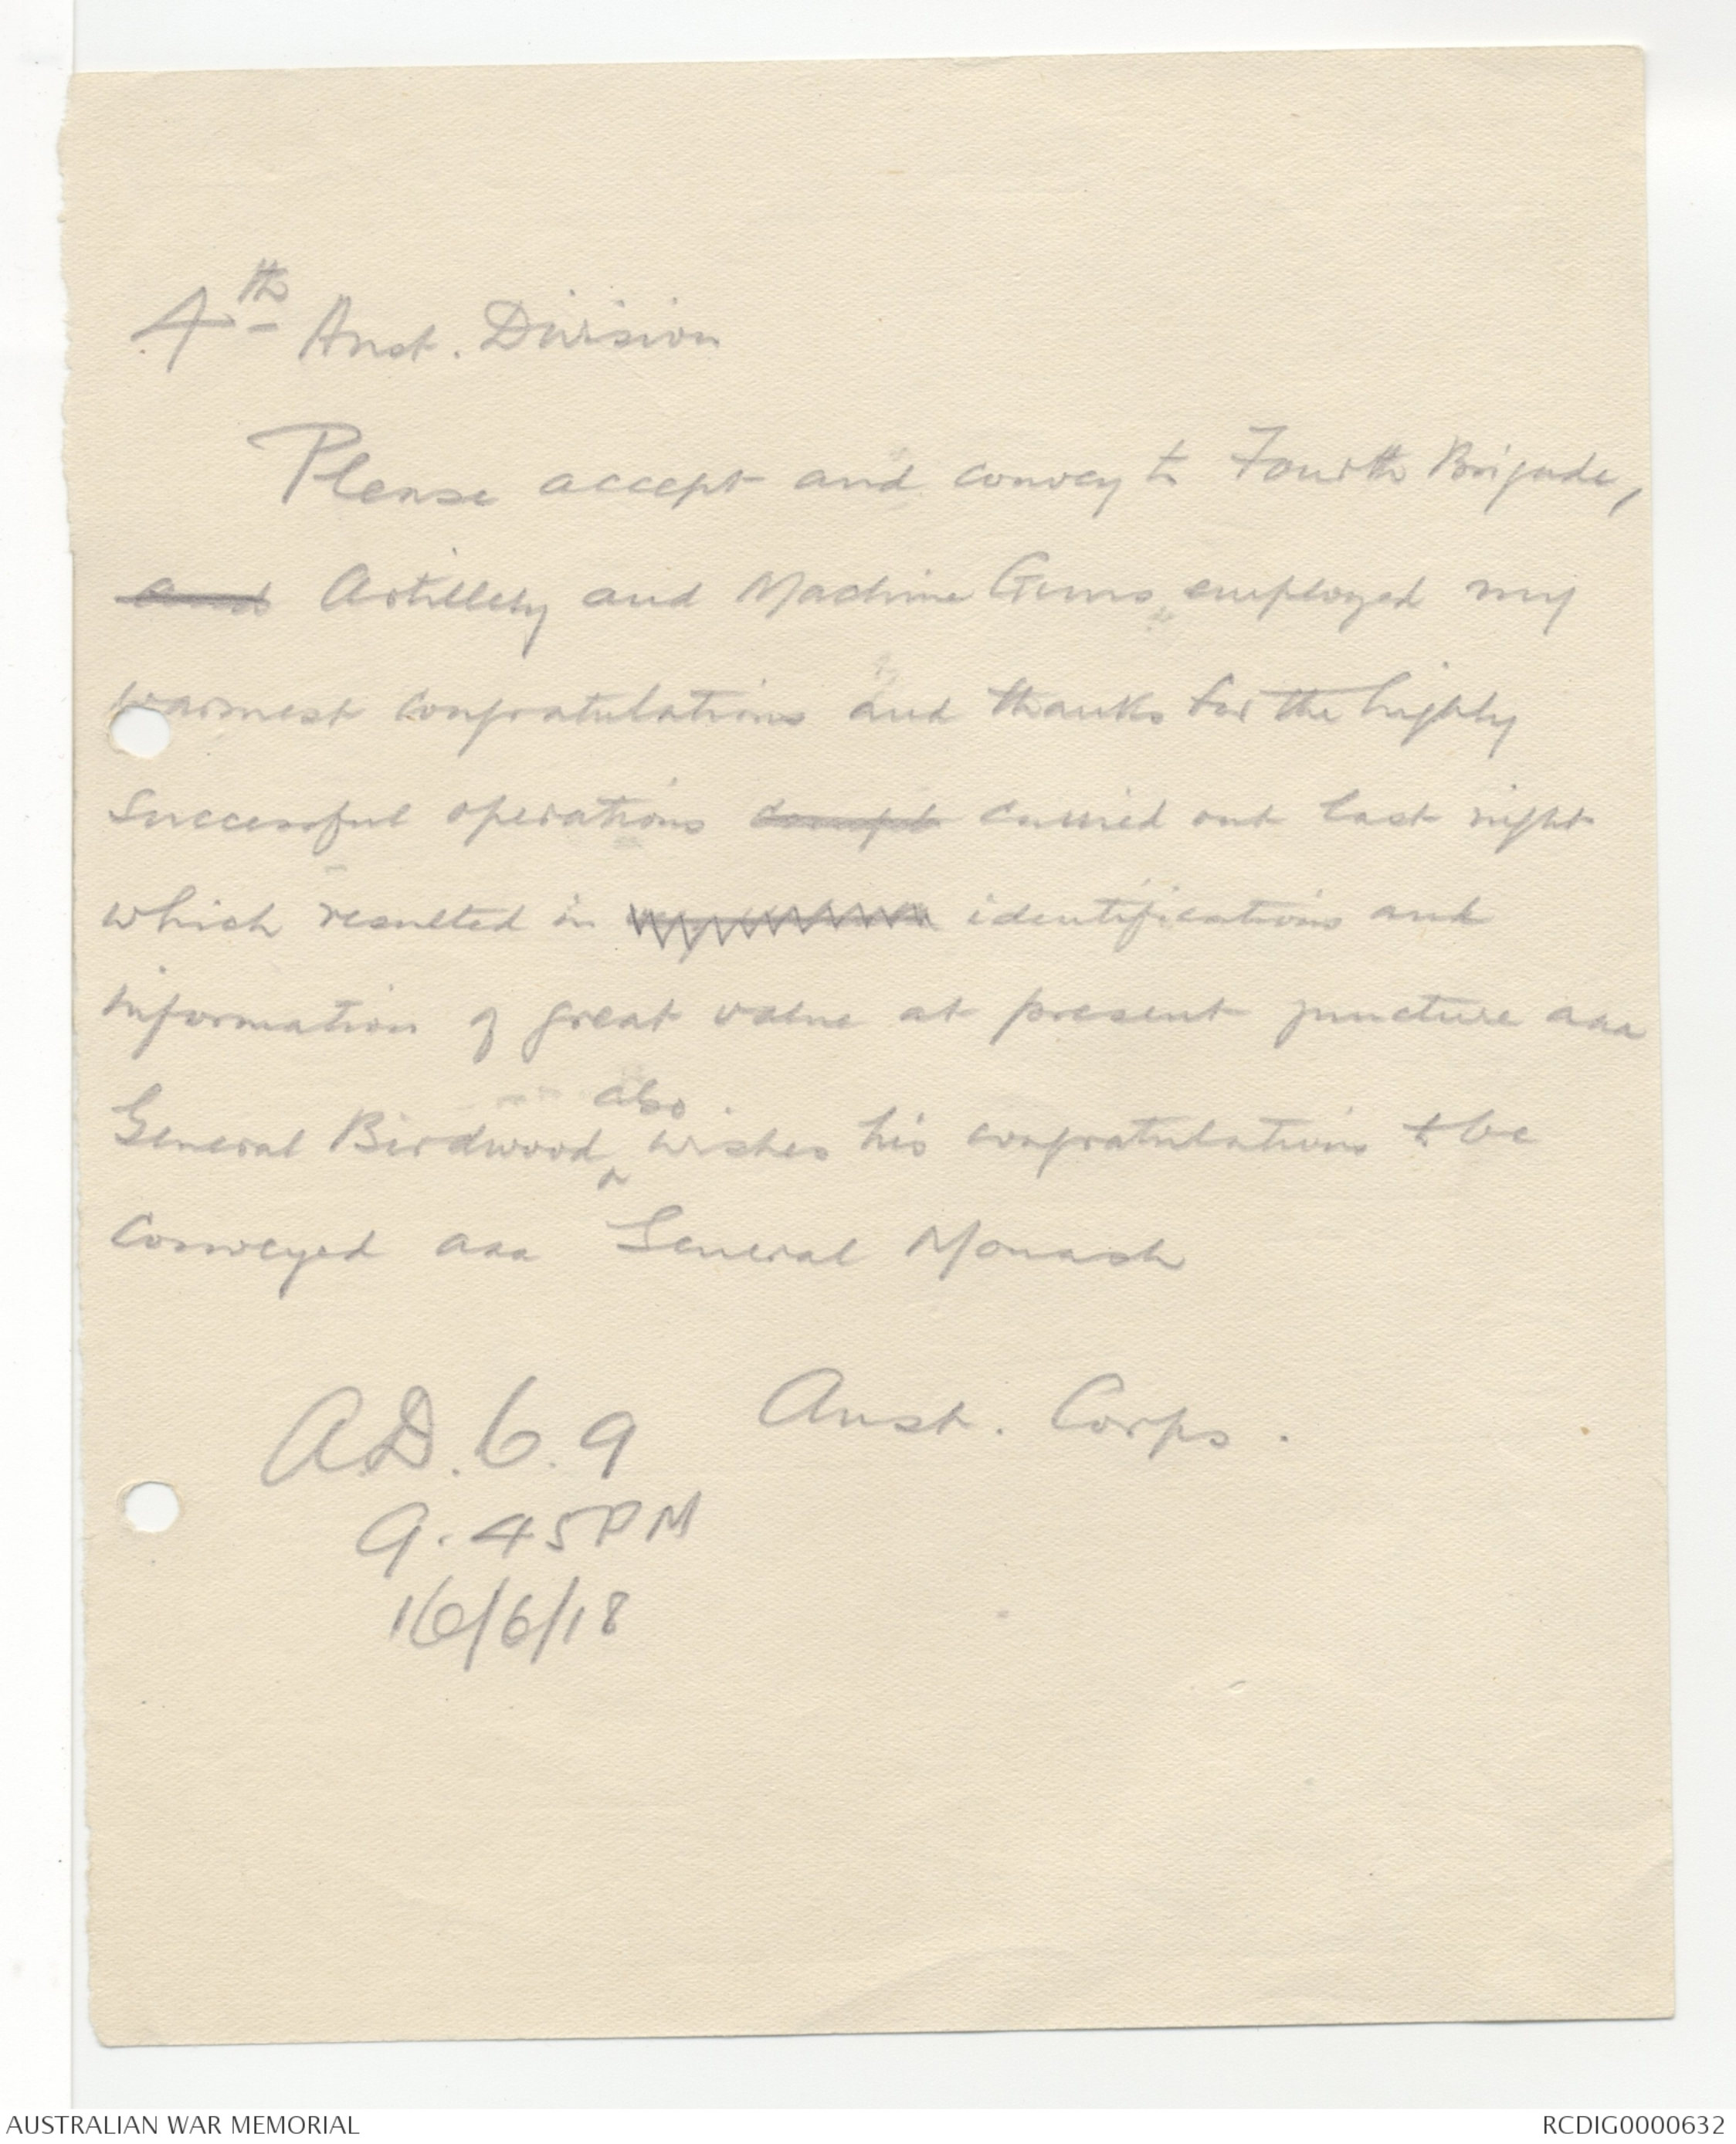 4th Aust. Division
Please accept and convey to Fourth Brigade,
and Artillery and Machine Guns employed my
warmest congratulations and thanks for the highly
successful operations compt carried out last night
which resulted in identifications and
information of great value at present juncture aaa
General Birdwood also wishes his congratulations to be
conveyed aaa General Monash
Aust. Corps.
A.D. 6.9
9.45PM
16/6/18
AUSTRALIAN WAR MEMORIAL
RCDIG0000632